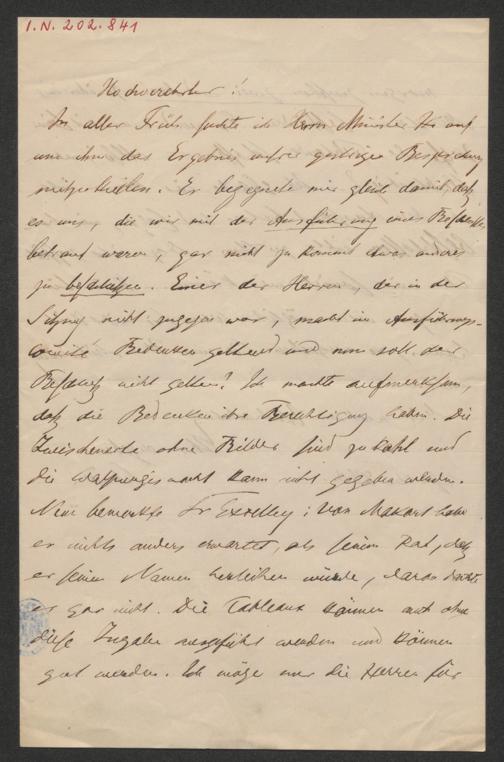 I.N. 202.841
Hochverehrter!
In aller Früh suchte ich Herrn Minister auf
um ihm das Ergebnis unsrer gestrigen Besprechung
mitzutheilen. Er begegnete mir gleich damit, daß
es uns, die wir mit der Ausführung eines Beschlusses
betraut waren, gar nicht zukommt etwas anderes
zu beschließen. Einer der Herren, der in der
Sitzung nicht zugegen war, macht im Ausführungs-
comité Bedenken geltend und nun soll der
Beschluß nicht gelten? Ich machte aufmerksam,
daß die Bedenken ihre Berechtigung haben. Die
Zwischenacte ohne Bilder sind zu kahl und
die Walpurgisnacht kann nicht gegeben werden.
Nein bemerkte Sr Exzellenz: von Makart habe
er nichts anders erwartet, als seinen Rat, daß
er seinen Namen herleihen würde, daran dachte
er gar nicht. Die Tableaux können auch ohne
diese Zugabe ausgeführt werden und können
gut werden. Ich möge nur die Herren für